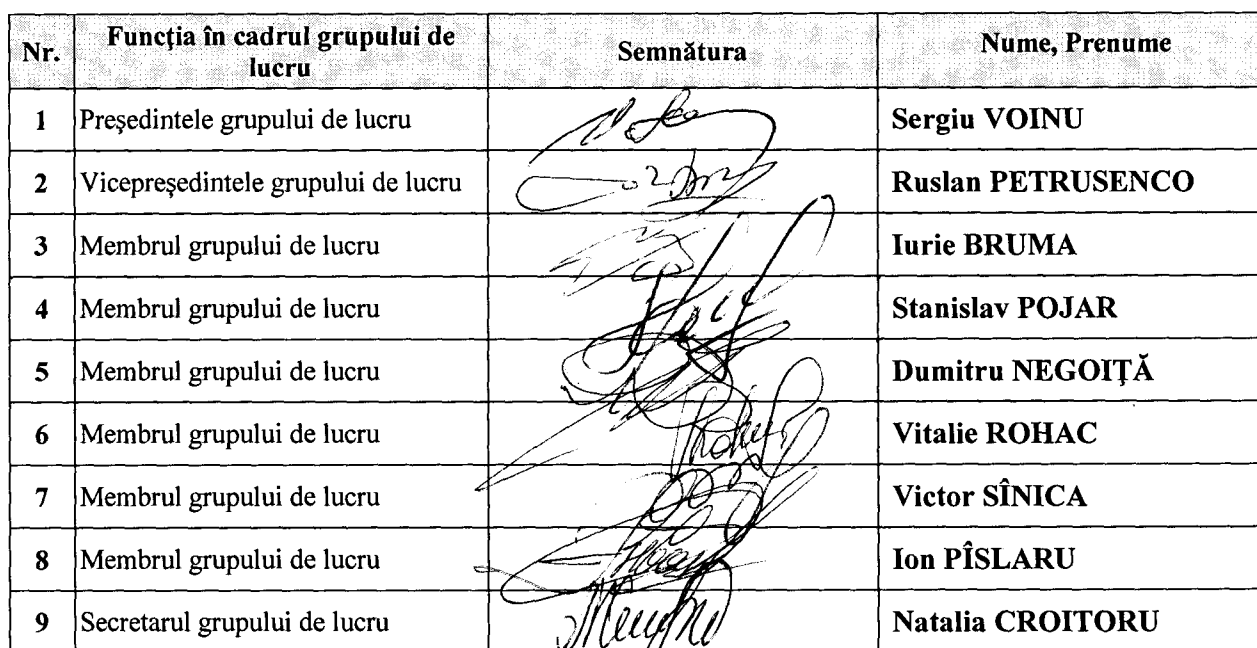 Nr. Funcţia în cadrul grupului de lucru Semnătura Nume, Prenume
1 Preşedintele grupului de lucru Sergiu VOINU
2 Vicepreşedintele grupului de lucru Ruslan PETRUSENCO
3 Membrul grupului de lucru Iurie BRUMA
4 Membrul grupului de lucru Stanislav POJAR
5 Membrul grupului de lucru Dumitru NEGOIŢĂ
6 Membrul grupului de lucru Vitalie ROHAC
7 Membrul grupului de lucru Victor SÎNICA
8 Membrul grupului de lucru Ion PÎSLARU
9 Secretarul grupului de lucru Natalia CROITORU